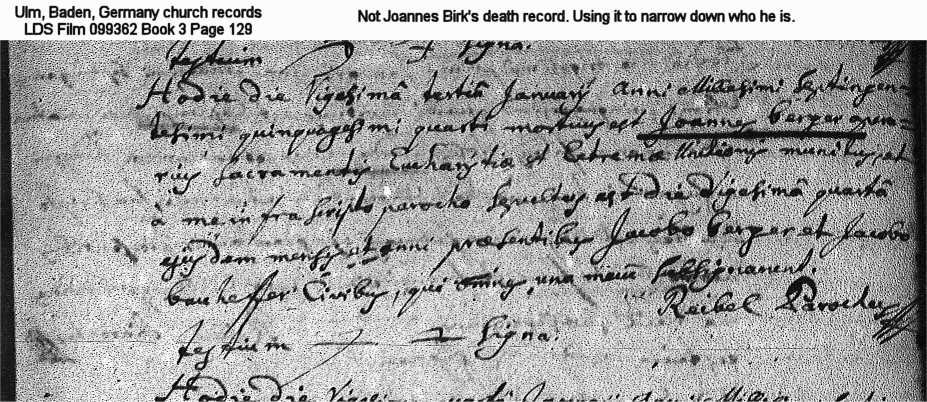 Ulm, Baden, Germany church records
LDS Film 099362 Book 3 Page 129
Not Joannes Birk's death record. Using it to narrow down who he is.
testium signa.
Hodie die Vigesimâ tertiâ January Anni Millesimi Septingen=
tesimi quinquagesimi quarti mortuus est Joannes berger opera=
rius Sacramentis Eucharistiæ et Extremæ Unctionis munitus, et
à me infra scripto parocho Sepultus est die Vigesimâ quartâ
ejusdem mensis et anni præsentibus Jacobo berger et Jacobo
Civibus, qui una mecum subsignarunt.
Reibel Parochus
testium Signa.
Hodie die